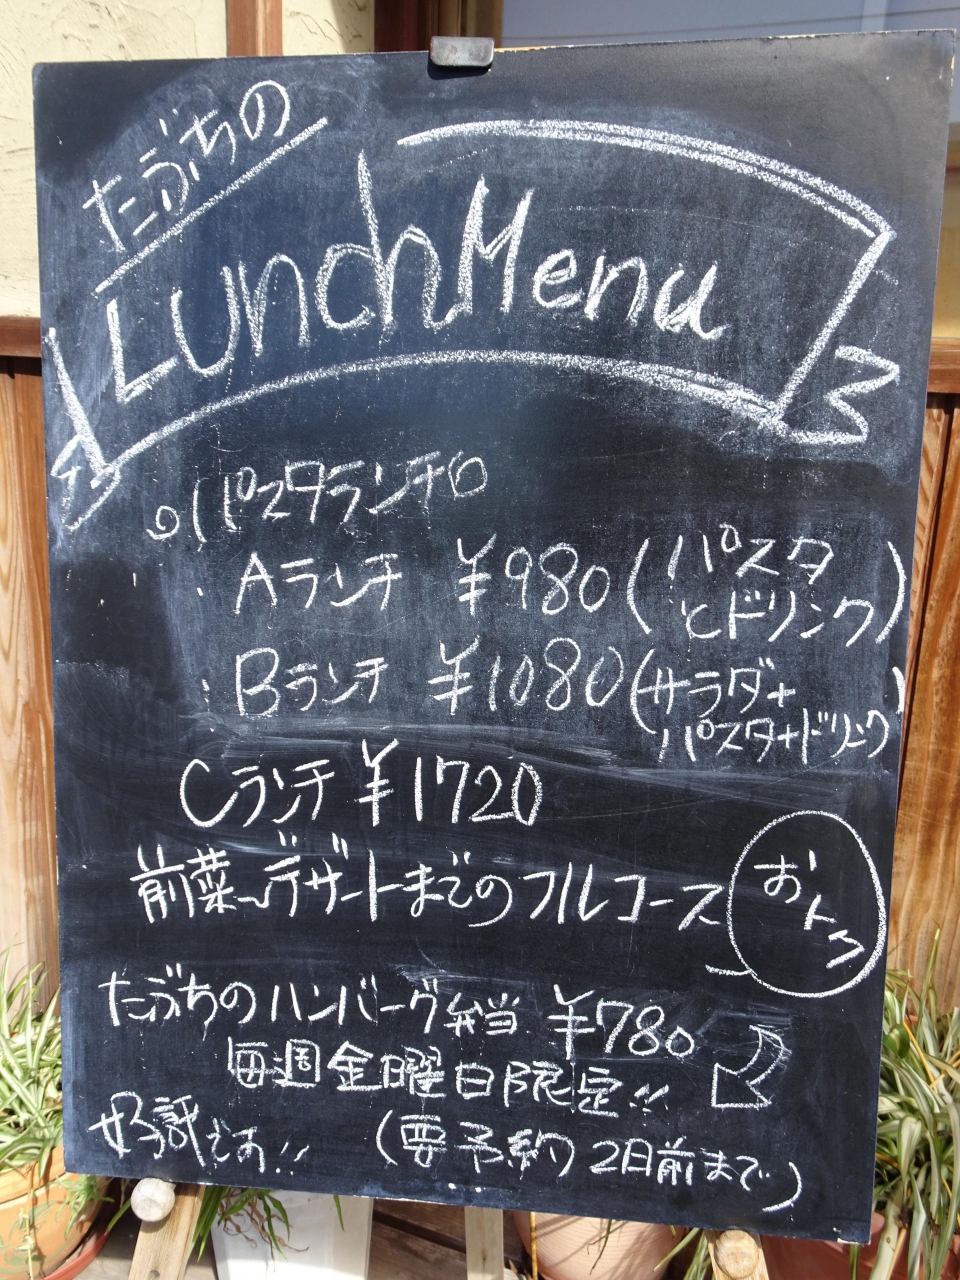 たぶちの
Lunch Menu
パスタランチ
Aランチ ¥980(パスタ
とドリンク)
Bランチ ¥1080(サラダ+
パスタ+ドリンク)
Cランチ ¥1720
前菜〜デザートまでのフルコース
おトク
たぶちのハンバーグ弁当 ¥780
毎週金曜日限定!!
好評です!!
(要予約 2日前まで)